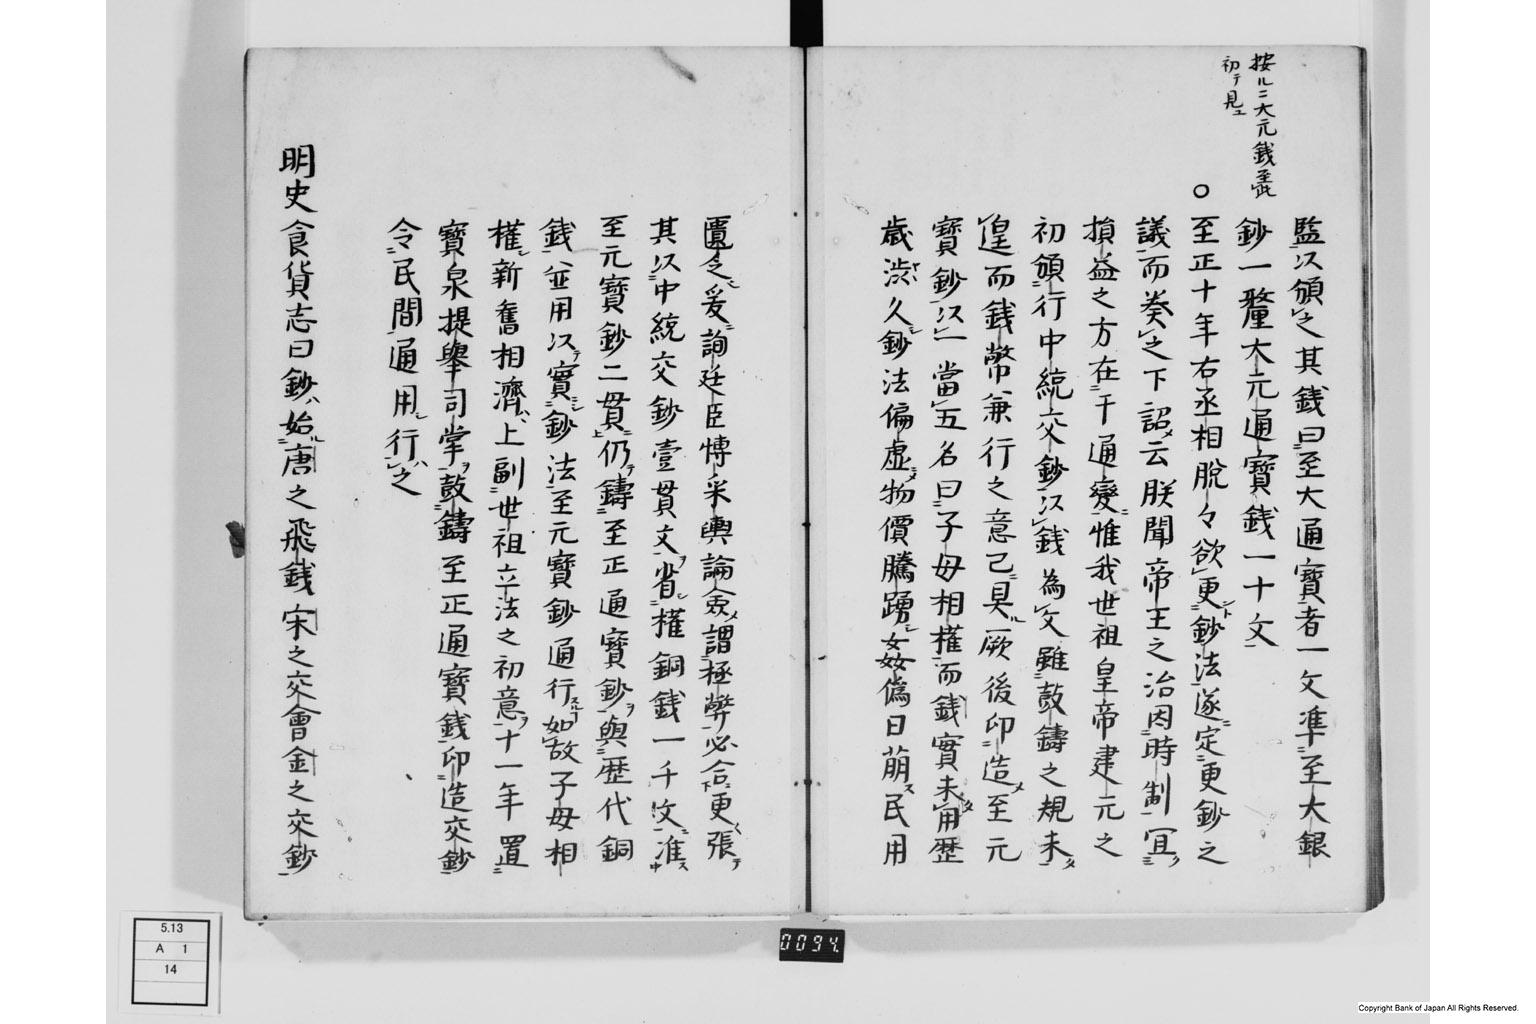 按ルニ大元錢至此
初テ見エ
監以頒之其錢曰至大通寶者一文準至大銀
鈔一釐大元通寶錢一十文
○至正十年右丞相脫々欲更鈔法遂定更鈔之
議而奏之下詔云朕聞帝王之治因時制宜
損益之方在干通變惟我世祖皇帝建元之
初頒行中統交鈔以錢為文雖鼓鑄之規未
遑而錢幣兼行之意己具厥後印造至元
寶鈔以一當五名曰子母相權而錢實未用歷
歲滋久鈔法偏虛物價騰踴姦偽日萠民用
匱乏爰詢廷臣博采輿論僉謂拯弊必合更張
其以中統交鈔壹貫文省權銅錢一千文准
至元寶鈔二貫仍鑄至正通寶鈔與歷代銅
錢並用以實鈔法至元寶鈔通行如故子母相
權新舊相濟上副世祖立法之初意十一年置
寶泉提舉司掌鼓鑄至正通寶錢印造交鈔
令民間通用行之
明史食貨志曰鈔始唐之飛錢宋之交會金之交鈔
5.13
A 1
14
0094.
Copyright Bank of Japan All Rights Reserved.